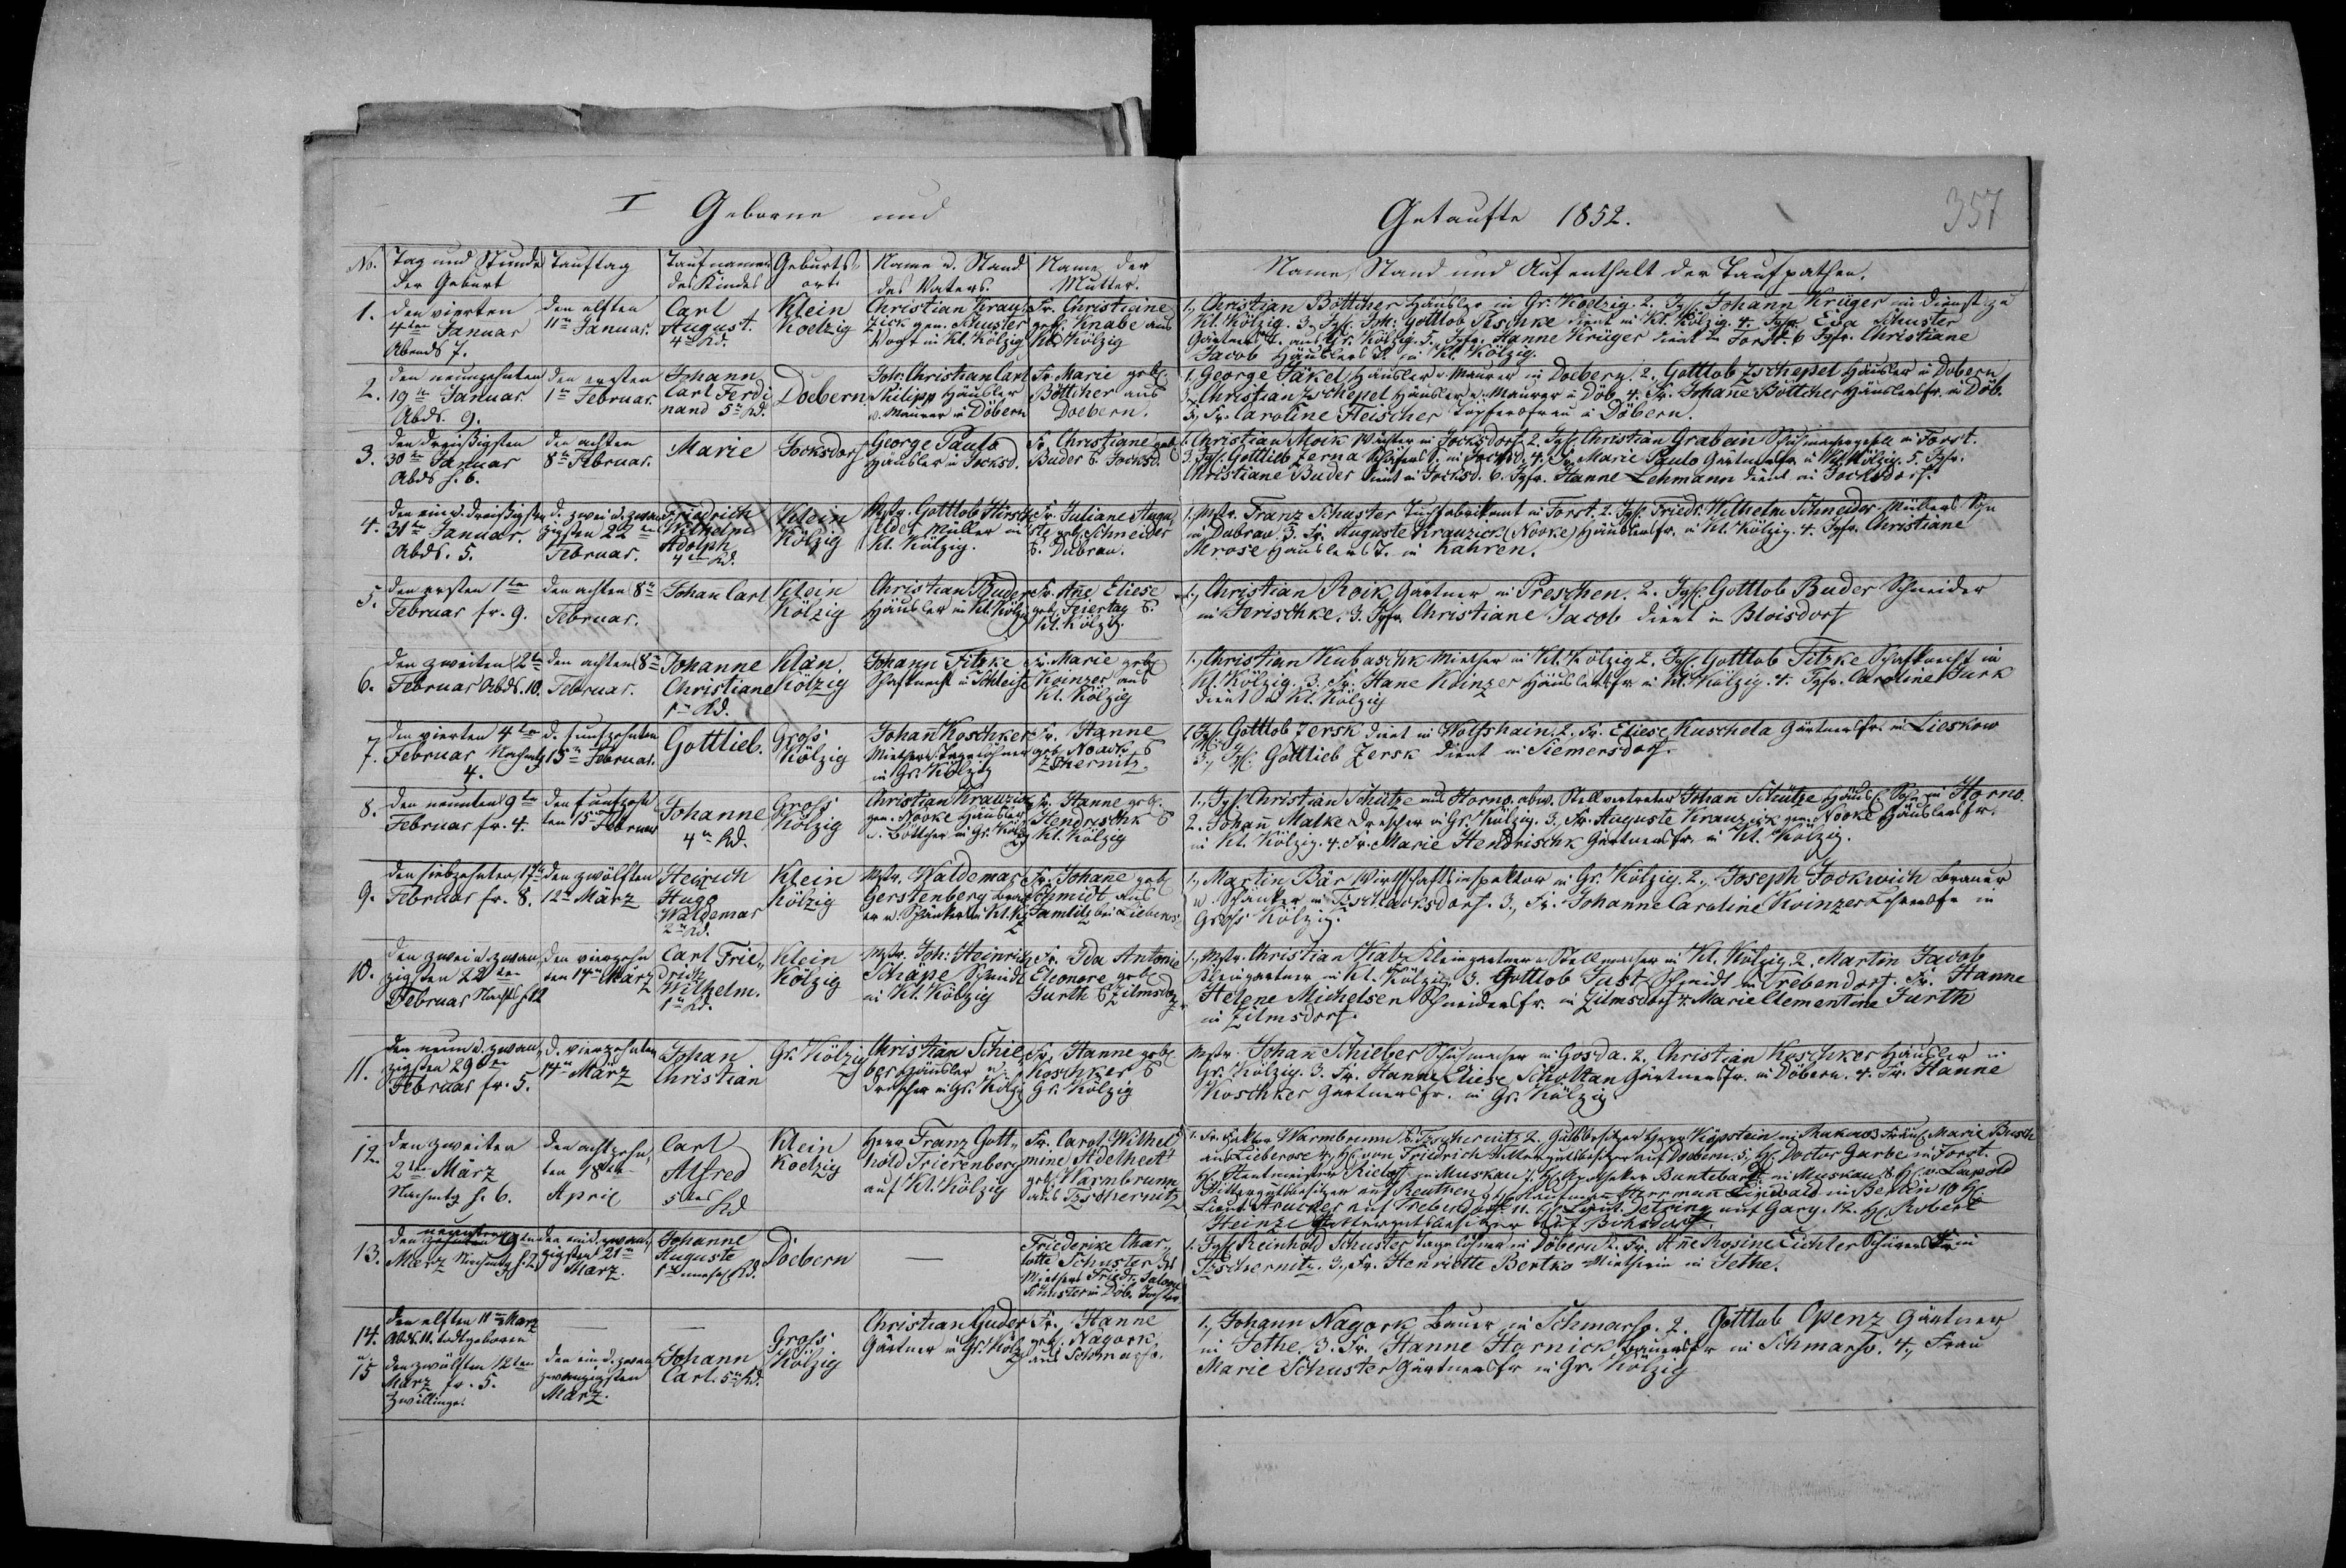 I Geborne und
Getaufte 1852.
357
No. Tag und Stunde der Geburt
Tauftag
Taufnamen des Kindes
Geburtsort
Name u. Stand des Vaters.
Name der Mutter.
Name, Stand und Aufenthalt der Taufpathen.
1.
den vierten
4ten Januar
Abends 7.
den elften
11ten Januar.
Carl
August.
4tes Kd.
Klein
Koelzig
Christian Krau-
zick gen. Schuster
Vogt in Kl. Kölzig
Fr. Christiane
geb. Knabe aus
Kl. Kölzig
1., Christian Böttcher Häusler in Gr. Koelzig. 2. Jgs. Johann Krüger in Dienst zu
Kl. Kölzig. 3., Jgs. Joh: Gottlob Peschke dient in Kl. Kölzig. 4. Jgfr. Eva Schuster
Gärtners T. aus Gr. Kölzig. 5. Jgfr. Hanne Krüger dient in Forst. 6 Jgfr. Christiane
Jacob Häuslers T. in Kl. Kölzig.
2.
den neunzehnten
19ten Januar
Abds. 9.
den ersten
1ten Februar.
Johann
Carl Ferdi
nand 5tes Kd.
Doebern
Joh: Christian Carl
Philipp Häusler
u. Maurer in Döbern
Fr. Marie geb.
Böttcher aus
Doebern.
1., George Jäkel Häusler u. Maurer in Doebern. 2. Gottlob Zschepel Häusler in Dobern
3., Christian Zschepel Häusler u. Maurer in Döb. 4. Fr. Johane Böttcher Häuslersfr. in Döb.
5., Fr. Caroline Fleischer Töpfersfrau in Döbern.
3.
den dreißigsten
30ten Januar
Abds h. 6.
den achten
8ten Februar.
Marie
Jocksdorf
George Paulo
Häusler in Jocksd.
Fr. Christiane geb.
Buder v. Jocksd.
1. Christian Mock Wächter in Jocksdorf 2. Jgs. Christian Grabein Schuhmachergesell in Forst.
3. Jgs. Gottlieb Zerna Schäfers S. in Jocksd. 4. Fr. Marie Paulo Gärtnersfr. in Kl. Kölzig. 5. Jgfr.
Christiane Buder dient in Jocksd. 6. Jgfr. Hanne Lehmann dient in Jocksdorf.
4.
den ein u. dreißigsten
31ten Januar.
Abds. 5.
d. zwei u. zwan
zigsten 22ten
Februar.
Friedrich
Wilhelm
Adolph
4tes Kd.
Klein
Kölzig
Mstr. Gottlob Hirsch
Müller in
Kl. Kölzig.
Fr. Juliane Augu
ste geb. Schneider
v. Dubrau.
1., Mstr. Franz Schuster Tuchfabrikant in Forst. 2. Jgs. Friedr. Wilhelm Schneider Müllers Sohn
in Dubrau. 3. Fr. Auguste Krauzick (Nooke) Häuslersfr. in Kl. Kölzig. 4. Jgfr. Christiane
Mrose Häuslers T. in Kahren.
5.
den ersten 1ten
Februar fr. 9.
den achten 8ten
Februar.
Johan Carl
Klein
Kölzig
Christian Buder
Häusler in Kl. Kölzig
Fr. Ane Eliese
geb. Feiertag v.
Kl. Kölzig.
1., Christian Roik Gärtner in Preschen. 2. Jgs. Gottlob Buder Schneider
in Jerischke. 3. Jgfr. Christiane Jacob dient in Bloisdorf
6.
den zweiten 2ten
Februar Abds. 10.
den achten 8ten
Februar.
Johanne
Christiane
1tes Kd.
Klein
Kölzig
Johann Titzke
Schafknecht in Schleife
Fr. Marie geb.
Koinzer aus
Kl. Kölzig
1., Christian Kubaschk Miether in Kl. Kölzig 2. Jgs. Gottlob Titzke Schafknecht in
Kl. Kölzig. 3. Fr. Hane Koinzer Häuslersfr. in Kl. Kölzig. 4. Jgfr. Caroline Jurk
dient in Kl. Kölzig
7.
den vierten 4ten
Februar Nachmtg
4.
d. funfzehnten
15ten Februar.
Gottlieb.
Gross
Kölzig
Johan Koschker
Miether u. Tagelöhner
in Gr. Kölzig
Fr. Hanne
geb. Noack v.
Zschernitz.
1. Jgs. Gottlob Zersk dient in Wolfshain. 2. Fr. Eliese Kuschela Gärtnersfr. in Lieskow
3., Jgs. Gottlieb Zersk dient in Siemersdorf.
8.
den neunten 9ten
Februar fr. 4.
den funfzehn
ten 15ten Februar
Johanne
4tes Kd.
Gross
Kölzig
Christian Krauzick
gen. Nooke Häusler
u. Böttcher in Gr. Kölzig
Fr. Hanne geb.
Hendrischk v.
Kl. Kölzig
1., Jgs. Christian Schütze aus Horno. abw. Stellvertreter Johan Schütze Häusl. Sohn in Horno.
2. Johan Matke Drescher in Gr. Kölzig. 3. Fr. Auguste Krauzick gen. Nooke Häuslersfr.
in Kl. Kölzig. 4. Fr. Marie Hendrischk Gärtnersfr. in Kl. Kölzig.
9.
den siebzehnten 17ten
Februar fr. 8.
den zwölften
12ten März
Heinrich
Hugo
Waldemar
2tes Kd.
Klein
Kölzig
Mstr. Waldemar
Gerstenberg Brau
er u. Schänker in Kl. K.
Fr. Johane geb.
Schmidt aus
Jamlitz bei
1., Martin Bär Wirthschaftsinspektor in Gr. Kölzig. 2., Joseph Jockwich Brauer
u. Schänker in Tschacksdorf. 3., Fr. Johanne Caroline Koinzer Lehrersfr. in
Gross Kölzig.
10.
den zwei u. zwan
zigsten 22ten
Februar Nachts h. 12
den vierzehn
ten 14ten März
Carl Frie-
drich
Wilhelm.
1tes Kd.
Klein
Kölzig
Mstr. Joh: Heinrich
Schäpe Schmidt
in Kl. Kölzig
Fr. Ida Antonie
Eleonore geb.
Jurth v. Zilmsdorf
1., Mstr. Christian Katz Kleingärtner u. Stellmacher in Kl. Kölzig. 2. Martin Jacob
Kleingärtner in Kl. Kölzig. 3. Gottlob Just Schmidt in Trebendorf. Fr. Hanne
Helene Michelsen Schneidersfr. in Zilmsdorf. 4. Marie Clementine Jurth
in Zilmsdorf.
11.
den neun u. zwan
zigsten 29ten
Februar fr. 5.
d. vierzehnten
14ten März
Johan
Christian
Gr. Kölzig
Christian Schie
ber Häusler u.
Drescher in Gr. Kölzig
Fr. Hanne geb.
Koschker v.
Gr. Kölzig
Mstr. Johan Schieber Schuhmacher in Gosda. 2. Christian Koschker Häusler in
Gr. Kölzig. 3. Fr. Hanne Eliese Scholtan Gärtnersfr. in Döbern. 4. Fr. Hanne
Koschker Gärtnersfr. in Gr. Kölzig.
12.
den zweiten
2ten März
Nachmtg h. 6.
den achtzehn
ten 18ten
April
Carl
Alfred
5tes Kd
Klein
Koelzig
Herr Franz Gott-
hold Trierenberg
auf Kl. Kölzig
Fr. Carol. Wilhel
mine Adelheit
geb. Warmbrunn
aus Tzschernitz
1. Fr. Faktor Warmbrunn v. Tzschernitz 2. Gutsbesitzer Herr Köpstein in 3 Fräul. Marie Busch
aus Lieberose 4. H. von Friedrich Rittergutsbesitzer auf Doebern. 5., H. Doctor Garbe in Forst.
H. Rentmeister Rieloff in Muskau 7. H. Apotheker Buntebardt in Muskau. 8. H. v. Leupold
Rittergutsbesitzer auf Reuthen 9. H. Kaufmann Herrmann in Berlin 10 H.
Lieut. Strucker auf Trebendorf. 11. H. Lieut. Detring auf Gary. 12. H. Robert
Heinze Rittergutsbesitzer auf Bohsdorf.
13.
den neunten 9ten
März Nachmtg h. 2
den ein u. zwan-
zigsten 21ten
März.
Johanne
Auguste
1tes unehel. Kd.
Doebern
—
Friederike Char-
lotte Schuster des
Miethers Friedr. Salom.
Schuster in Döb. Tochter
1. Jgs. Reinhold Schuster Tagelöhner in Döbern 2. Fr. Ane Rosine Lichter Schäfersfr. in
Tzschernitz. 3., Fr. Henriette Bertko Mietherin in Jethe.
14.
u.
15
den elften 11ten März
Abds. 11. todtgeboren
den zwölften 12ten
März fr. 5.
Zwillinge.
—
den ein u. zwan
zwanzigsten
März.
—
Johann
Carl. 5tes Kd.
Gross
Kölzig
Christian Guder
Gärtner in Gr. Kölzig
Fr. Hanne
geb. Nagork
aus Schmarso.
1., Johann Nagork Bauer in Schmarso. 2. Gottlob Openz Gärtner
in Jethe. 3. Fr. Hanne Hornick Bauersfr. in Schmarso. 4., Frau
Marie Schuster Gärtnersfr in Gr. Kölzig